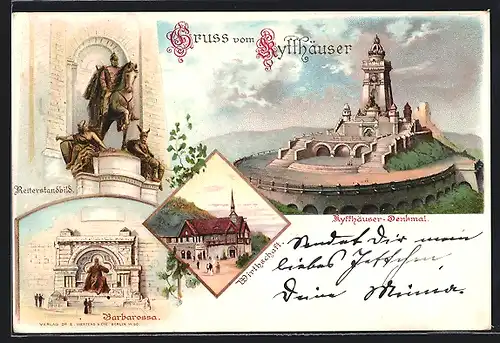 Gruss vom Kyffhäuser
Reiterstandbild.
Kyffhäuser-Denkmal.
Wirthschaft.
Barbarossa.
Sendet Dir mein
liebes
Deine Minna.